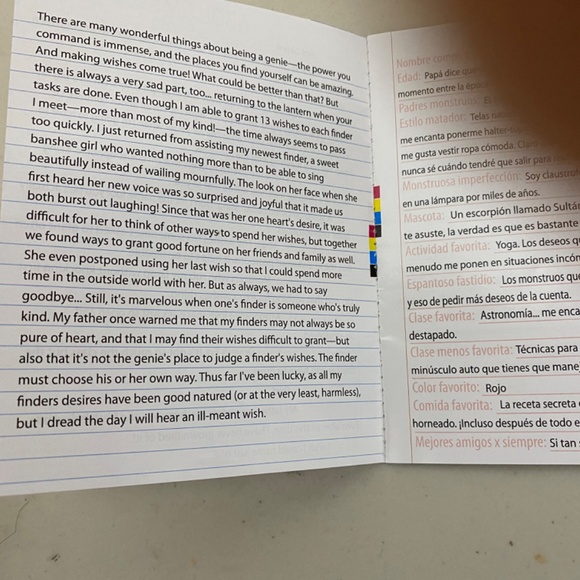 There are many wonderful things about being a genie—the power you
command is immense, and the places you find yourself can be amazing.
And making wishes come true! What could be better than that? But
there is always a very sad part, too... returning to the lantern when your
tasks are done. Even though I am able to grant 13 wishes to each finder
I meet—more than most of my kind!—the time always seems to pass
too quickly. I just returned from assisting my newest finder, a sweet
banshee girl who wanted nothing more than to be able to sing
beautifully instead of wailing mournfully. The look on her face when she
first heard her new voice was so surprised and joyful that it made us
both burst out laughing! Since that was her one heart's desire, it was
difficult for her to think of other ways to spend her wishes, but together
we found ways to grant good fortune on her friends and family as well.
She even postponed using her last wish so that I could spend more
time in the outside world with her. But as always, we had to say
goodbye... Still, it's marvelous when one's finder is someone who's truly
kind. My father once warned me that my finders may not always be so
pure of heart, and that I may find their wishes difficult to grant—but
also that it's not the genie's place to judge a finder's wishes. The finder
must choose his or her own way. Thus far I've been lucky, as all my
finders desires have been good natured (or at the very least, harmless),
but I dread the day I will hear an ill-meant wish.
Nombre
Edad: Papá dice
momento entre la
Padres monstruos:
Estilo matador: Telas
me encanta ponerme halter
me gusta vestir ropa cómoda.
nunca sé cuándo tendré que salir para
Monstruosa imperfección: Soy
en una lámpara por miles de años.
Mascota: Un escorpión llamado
te asuste, la verdad es que es bastante
Actividad favorita: Yoga. Los deseos
menudo me ponen en situaciones
Espantoso fastidio: Los monstruos
y eso de pedir más deseos de la cuenta.
Clase favorita: Astronomía... me
destapado.
Clase menos favorita: Técnicas para
minúsculo auto que tienes que
Color favorito: Rojo
Comida favorita: La receta secreta
horneado. ¡Incluso después de todo
Mejores amigos x siempre: Si tan